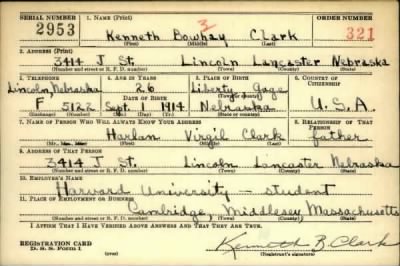 SERIAL NUMBER 1. NAME (Print) ORDER NUMBER
2953 Kenneth Bowhay Clark 3 321
(First) (Middle) (Last)
2. ADDRESS (Print)
3414 J St. Lincoln Lancaster Nebraska
(Number and street or R. F. D. number) (Town) (County) (State)
3. TELEPHONE 4. AGE IN YEARS 5. PLACE OF BIRTH 6. COUNTRY OF CITIZENSHIP
Lincoln, Nebraska 26 Liberty Gage
DATE OF BIRTH (Town or county)
F 5122 Sept. 1 1914 Nebraska U.S.A.
(Exchange) (Number) (Mo.) (Day) (Yr.) (State or country)
7. NAME OF PERSON WHO WILL ALWAYS KNOW YOUR ADDRESS 8. RELATIONSHIP OF THAT PERSON
Harlan Virgil Clark father
(Mr., Mrs., Miss) (First) (Middle) (Last)
9. ADDRESS OF THAT PERSON
3414 J St. Lincoln Lancaster Nebraska
(Number and street or R. F. D. number) (Town) (County) (State)
10. EMPLOYER'S NAME
Harvard University — student
11. PLACE OF EMPLOYMENT OR BUSINESS
Cambridge, Middlesex Massachusetts
(Number and street or R. F. D. number) (Town) (County) (State)
I AFFIRM THAT I HAVE VERIFIED ABOVE ANSWERS AND THAT THEY ARE TRUE.
REGISTRATION CARD
D. S. S. Form 1 Kenneth B. Clark
(Registrant's signature)